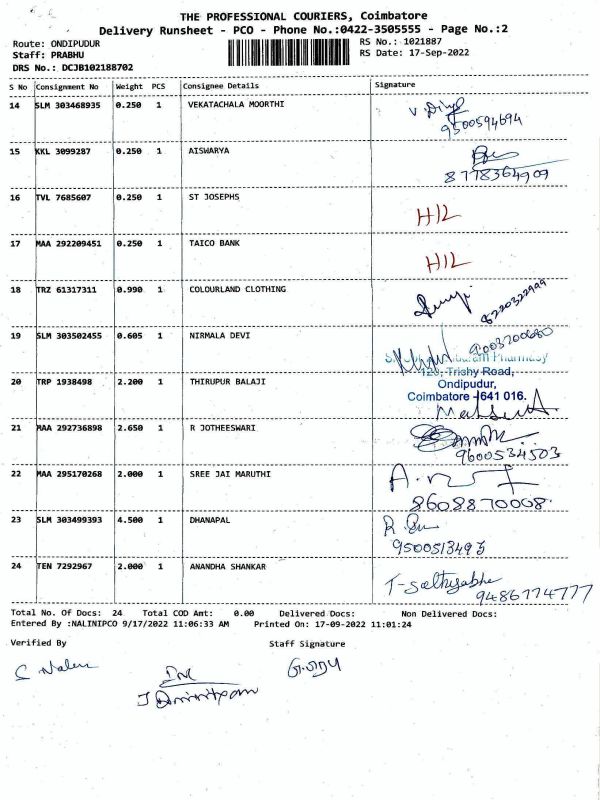 THE PROFESSIONAL COURIERS, Coimbatore
Delivery Runsheet - PCO - Phone No.:0422-3505555 - Page No.:2
Route: ONDIPUDUR RS No.: 1021887
Staff: PRABHU RS Date: 17-Sep-2022
DRS No.: DCJB102188702
S No Consignment No Weight PCS Consignee Details Signature
14 SLM 303468935 0.250 1 VEKATACHALA MOORTHI
9500594694
15 KKL 3099287 0.250 1 AISWARYA
8778364909
16 TVL 7685607 0.250 1 ST JOSEPHS
H/L
17 MAA 292209451 0.250 1 TAICO BANK
H/L
18 TRZ 61317311 0.990 1 COLOURLAND CLOTHING
8220322999
19 SLM 303502455 0.605 1 NIRMALA DEVI
9003700680
Pharmacy
Trichy Road,
20 TRP 1938498 2.200 1 THIRUPUR BALAJI
Ondipudur,
Coimbatore - 641 016.
21 MAA 292736898 2.650 1 R JOTHEESWARI
9600534503
22 MAA 295170268 2.000 1 SREE JAI MARUTHI
8608870008.
23 SLM 303499393 4.500 1 DHANAPAL
9500513493
24 TEN 7292967 2.000 1 ANANDHA SHANKAR
9486774777
Total No. Of Docs: 24 Total COD Amt: 0.00 Delivered Docs: Non Delivered Docs:
Entered By :NALINIPCO 9/17/2022 11:06:33 AM Printed On: 17-09-2022 11:01:24
Verified By Staff Signature